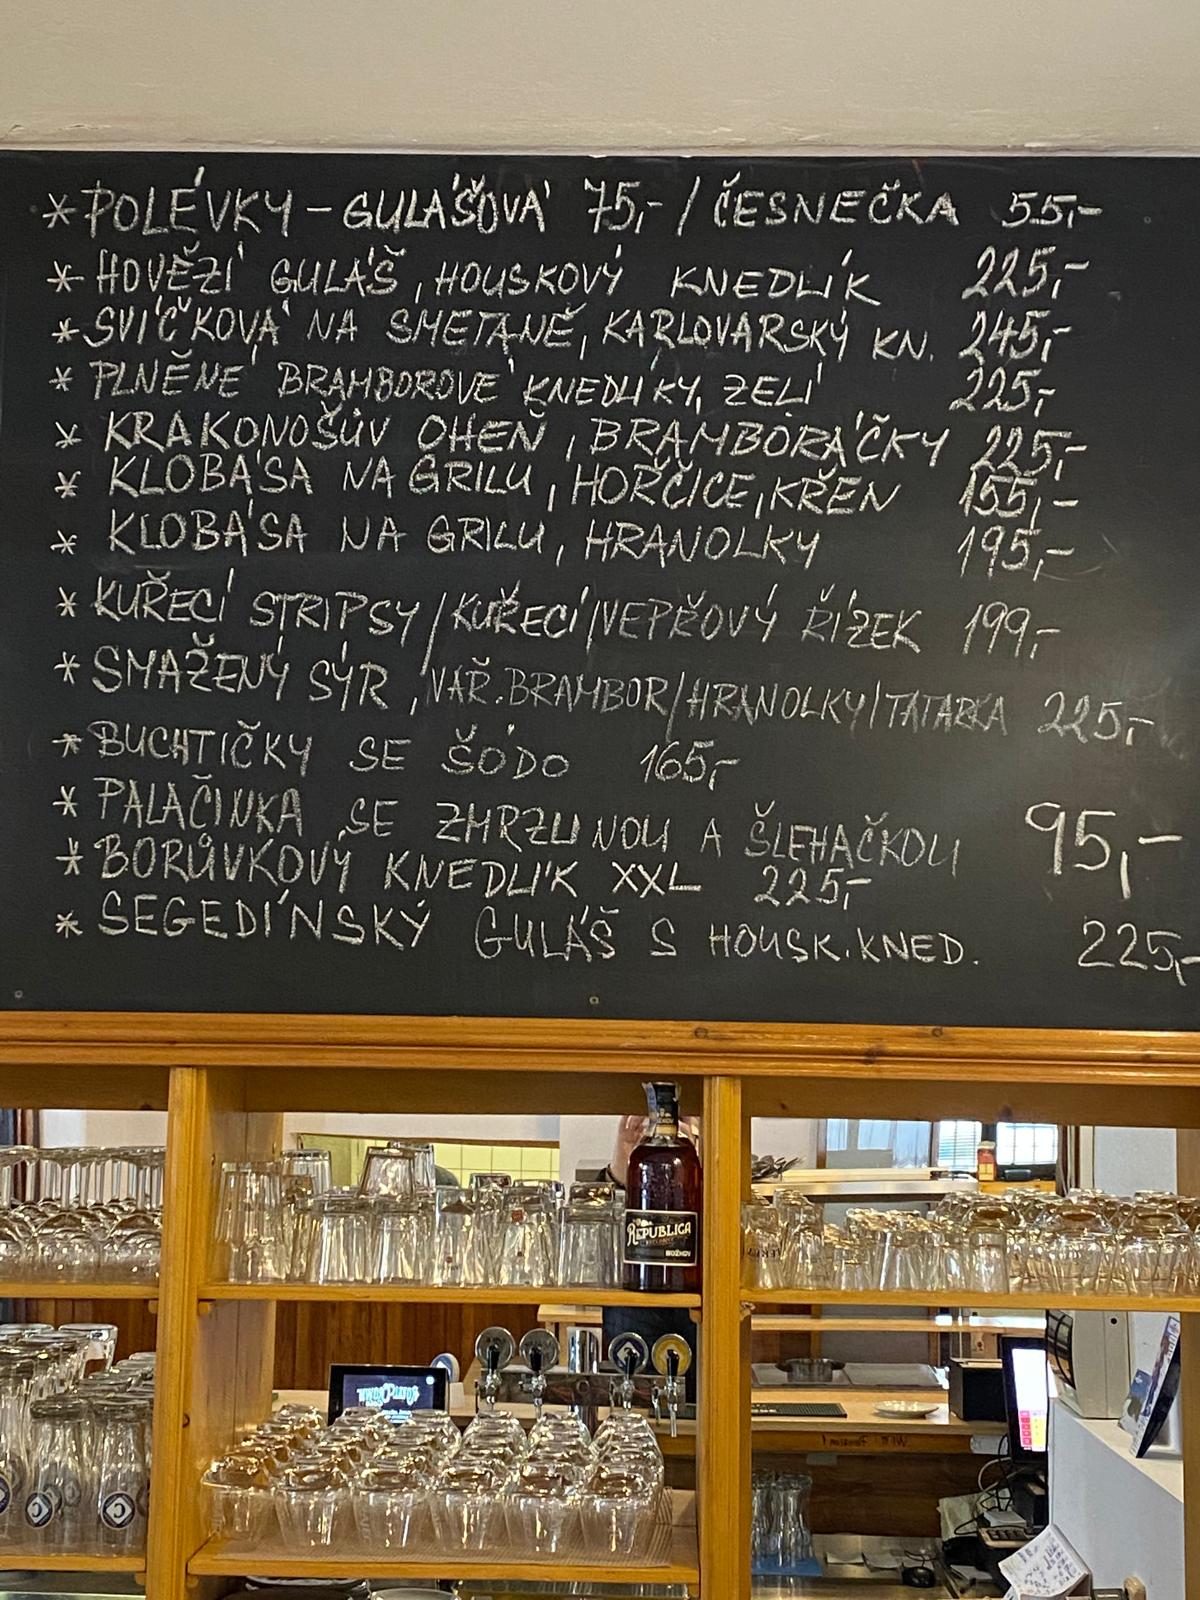 *POLÉVKY - GULÁŠOVÁ 75,- / ČESNEČKA 55,-
* HOVĚZÍ GULÁŠ, HOUSKOVÝ KNEDLÍK 225,-
* SVÍČKOVÁ NA SMETANĚ, KARLOVARSKÝ KN. 245,-
* PLNĚNÉ BRAMBOROVÉ KNEDLÍKY, ZELÍ 225,-
* KRAKONOŠŮV OHEŇ, BRAMBORÁČKY 225,-
* KLOBÁSA NA GRILU, HOŘČICE, KŘEN 155,-
* KLOBÁSA NA GRILU, HRANOLKY 195,-
* KUŘECÍ STRIPSY/KUŘECÍ/VEPŘOVÝ ŘÍZEK 199,-
* SMAŽENÝ SÝR, VAŘ.BRAMBOR/HRANOLKY/TATARKA 225,-
* BUCHTIČKY SE ŠÓDO 165,-
* PALAČINKA SE ZMRZLINOU A ŠLEHAČKOU 95,-
* BORŮVKOVÝ KNEDLÍK XXL 225,-
* SEGEDÍNSKÝ GULÁŠ S HOUSK.KNED. 225,-
REPUBLICA
BOŽKOV